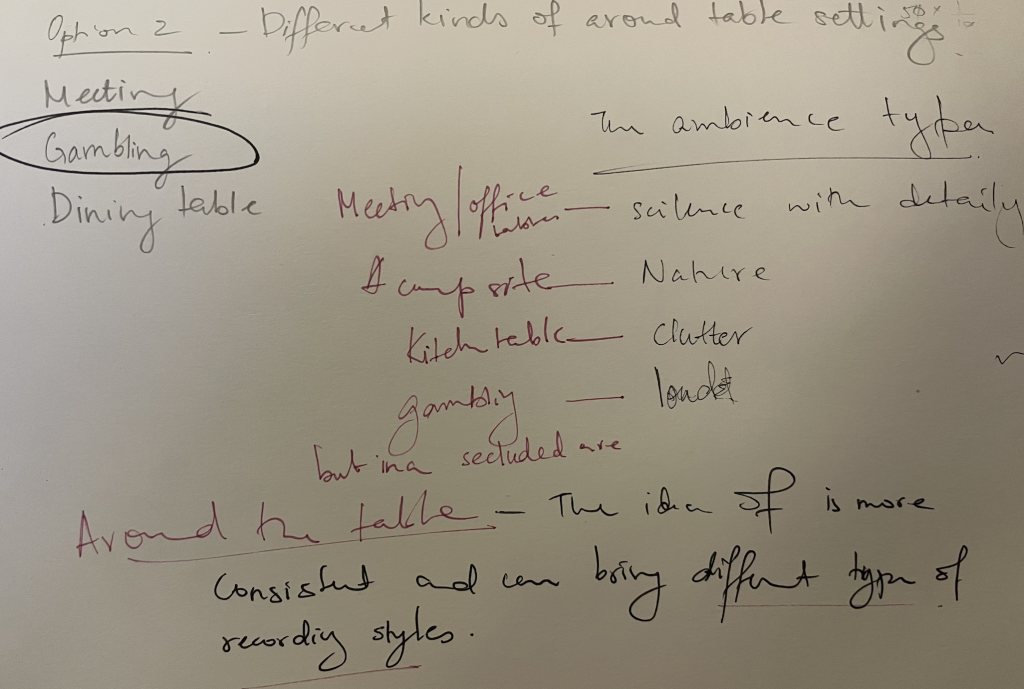 Option 2 - Different kinds of around table settings.
Meeting
Gambling
The ambience types
Dining table
Meeting/office — scilence with detaily
A camp site — Nature
Kitchn table — clutter
gambliy — loud
but in a secluded are
Around the table - The idea of is more
Consistent and can bring different type of
recordiy styles.